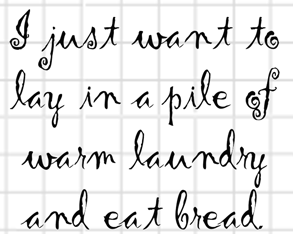 I just want to
lay in a pile of
warm laundry
and eat bread.